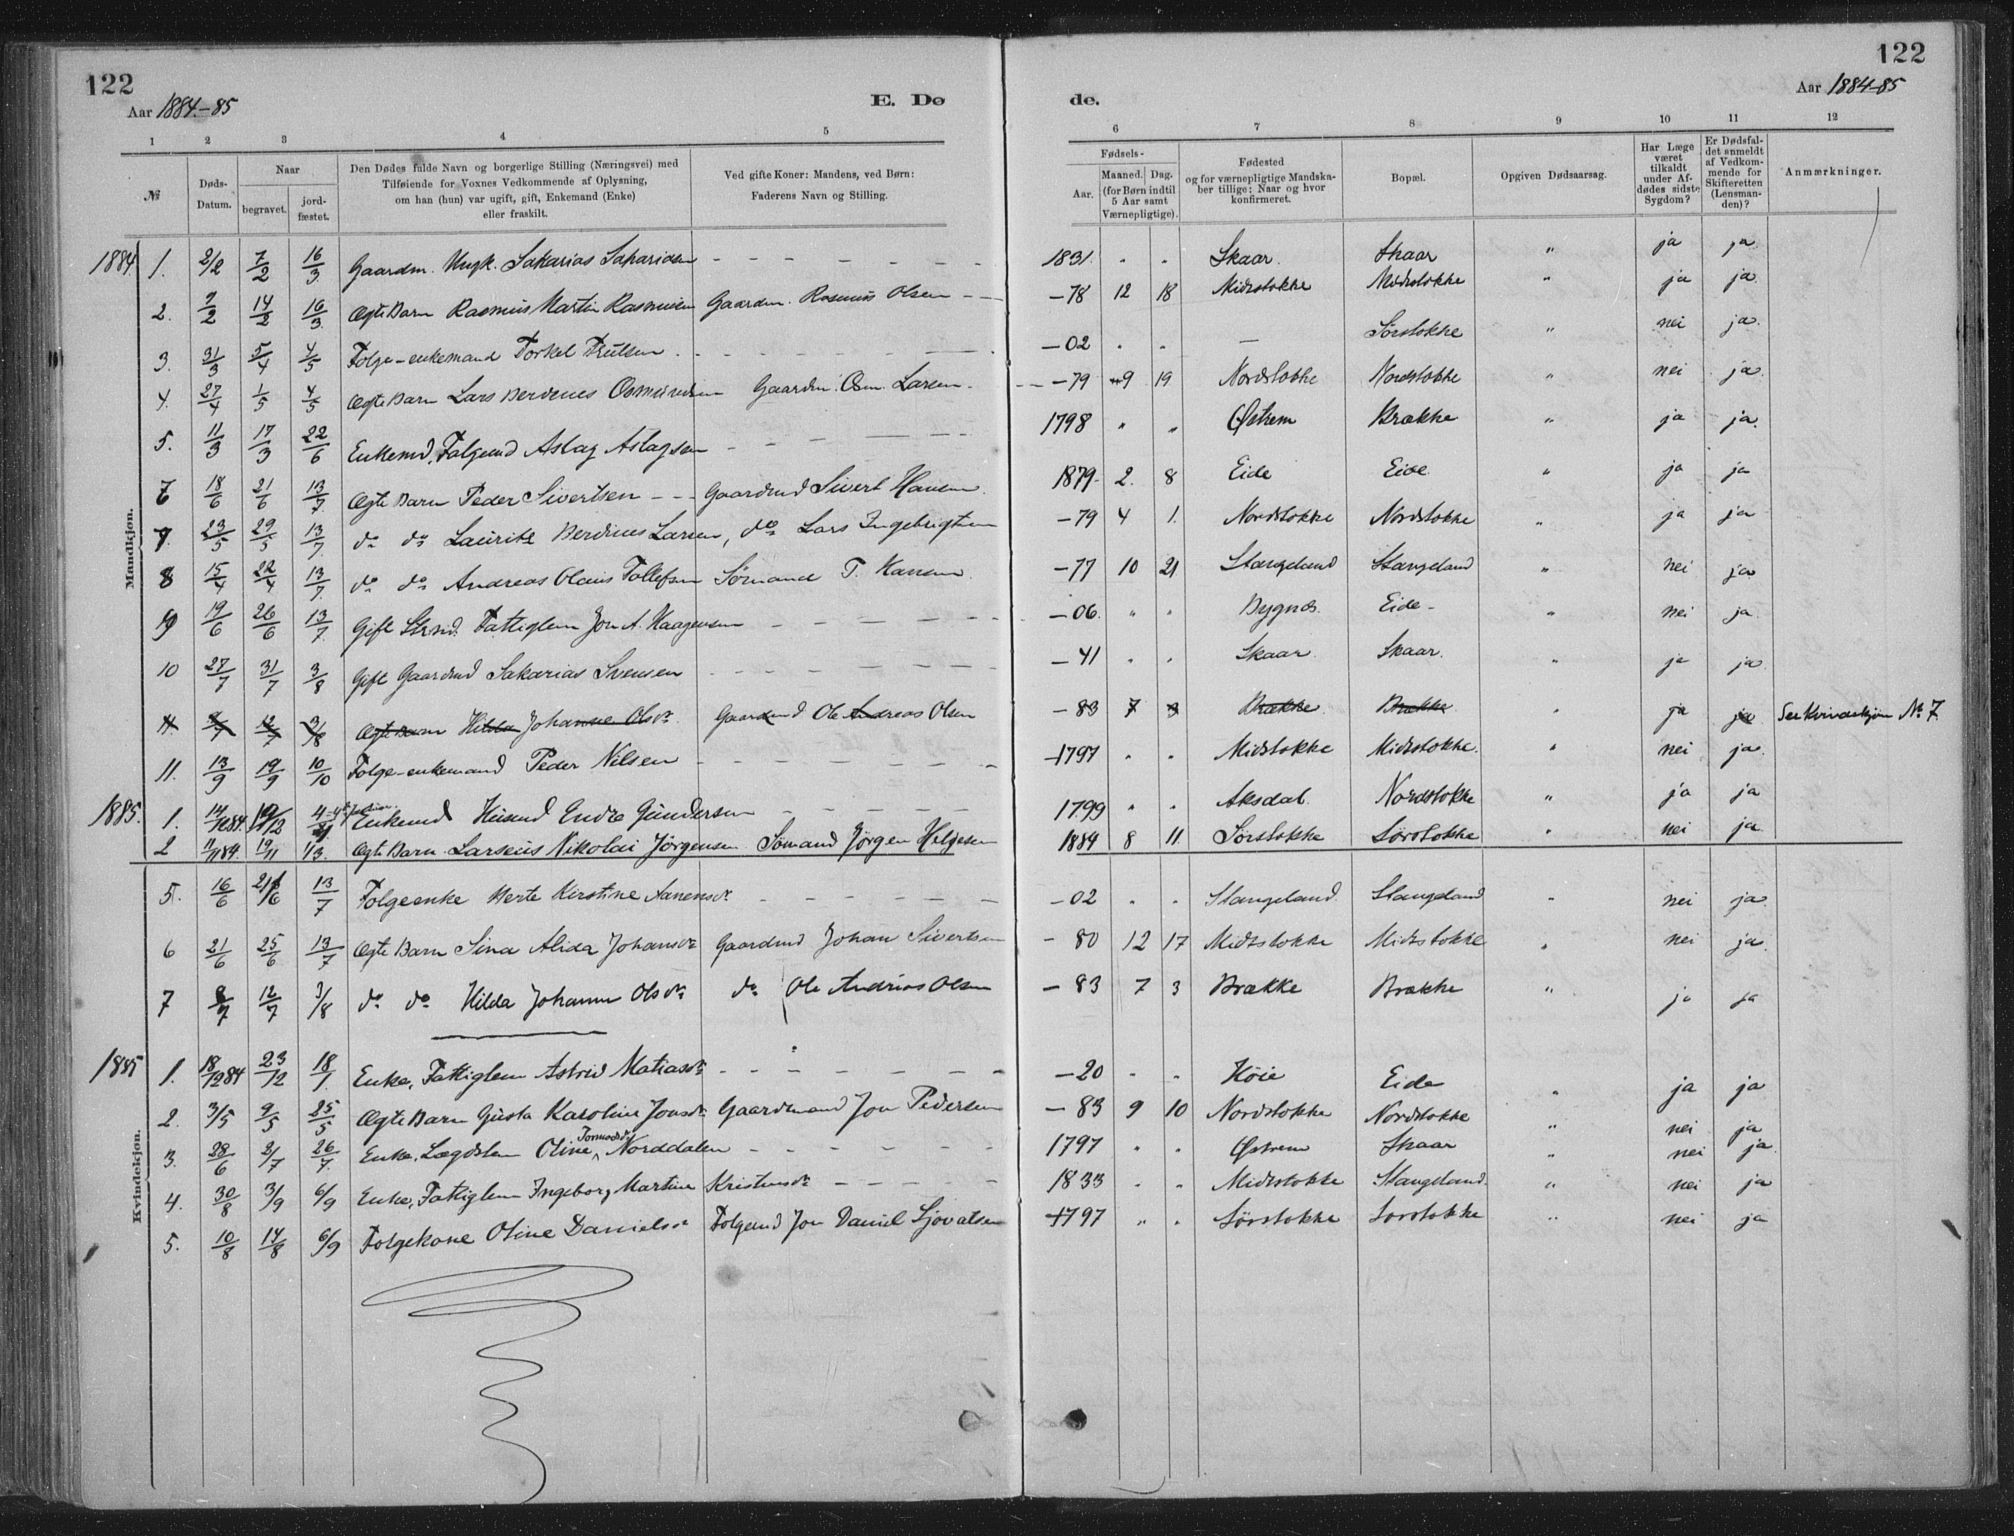 122
122
Aar 1884-85
E. Dø
de.
Aar 1884-85
1 2 3 4 5 6 7 8 9 10 11 12
№
Døds-Datum.
Naar
begravet.
jordfæstet.
Den Dødes fulde Navn og borgerlige Stilling (Næringsvei) med Tilføiende for Voxnes Vedkommende af Oplysning, om han (hun) var ugift, gift, Enkemand (Enke) eller fraskilt.
Ved gifte Koner: Mandens, ved Børn: Faderens Navn og Stilling.
Fødsels-
Aar.
Maaned. Dag. (for Børn indtil 5 Aar samt Værnepligtige).
Fødested og for værnepligtige Mandskaber tillige: Naar og hvor konfirmeret.
Bopæl.
Opgiven Dødsaarsag.
Har Læge været tilkaldt under Afdødes sidste Sygdom?
Er Dødsfaldet anmeldt af Vedkommende for Skifteretten (Lensmanden)?
Anmærkninger.
Mandkjøn.
1884 1. 2/2 7/2 16/3 Gaardm. Ungk. Sakarias Sakariasen 1831 " " Skaar Skaar " ja ja
2. 9/2 14/2 16/3 Ægte Barn Rasmus Martin Rasmusen Gaardm. Rasmus Olsen —78 12 18 Midtstokke Midtstokke " ja ja
3. 31/3 5/4 4/5 Folge-enkemand Torkel Trulsen —02 " " — Sørstokke " nei ja
4. 27/4 1/5 4/5 Ægte Barn Lars Berdines Osmundsen Gaardm. Osm. Larsen —79 9 19 Nordstokke Nordstokke " nei ja
5. 11/3 17/3 22/6 Enkemd, Folgemd Aslag Aslagsen 1798 " " Østrem Brække " ja ja
6 18/6 21/6 13/7 Ægte Barn Peder Sivertsen Gaardmd Sivert Hansen 1879 2 8 Eide Eide " ja ja
7. 23/5 29/5 13/7 do do Lauritz Berdines Larsen, do Lars Ingebrigtsen —79 4 1 Nordstokke Nordstokke " ja ja
8 15/4 22/4 13/7 do do Andreas Olaus Tollefsen Sømand T. Hansen —77 10 21 Stangeland Stangeland " nei ja
9 19/6 26/6 13/7 Gift Strmd. Fattiglem Jon A. Haagensen —06 " " Bygnes Eide " nei ja
10 27/7 31/7 3/8 Gift Gaardmd Sakarias Svensen —41 " " Skaar Skaar " ja ja
11 8/7 12/7 3/8 Ægte Barn Hilda Johanne Olsdr. Gaardmd Ole Andreas Olsen —83 7 3 Brække Brække " ja ja See Kvindekjøn No 7
11. 13/9 19/9 10/10 Folge-enkemand Peder Nilsen 1797 " " Midtstokke Midtstokke " nei ja
1885. 1. 12/84 19/12 Enkemd Huusmd Endre Gundersen 1799 " " Aksdal Nordstokke " ja ja
2 11/11 84 19/11 1/3 Ægte Barn Larseus Nikolai Jørgensen Sømand Jørgen Helgesen 1884 8 11 Sørstokke Sørstokke " nei ja
Kvindekjøn.
5. 16/6 21/6 13/7 Folgeenke Berte Kirstine Aanensdr —02 " " Stangeland Stangeland " nei ja
6 21/6 25/6 13/7 Ægte Barn Sina Alida Johansdr Gaardmd Johan Sivertsen —80 12 17 Midtstokke Midtstokke " nei ja
7 8/7 12/7 3/8 do do Hilda Johanne Olsdr do Ole Andreas Olsen —83 7 3 Brække Brække " ja ja
1885 1. 18/12 84 23/12 18/1 Enke, Fattiglem Astrid Matiasdr —20 " " Høie Eide " ja ja
2. 3/5 9/5 25/5 Ægte Barn Gusta Karoline Jonsdr Gaardmand Jon Pedersen —83 9 10 Nordstokke Nordstokke " nei ja
3. 28/6 2/7 26/7 Enke, Lægdslem Oline Norddalen 1797 " " Østrem Skaar " nei ja
4. 30/8 3/9 6/9 Enke, Fattiglem Ingeborg Martine Kristensdr 1833 " " Midtstokke Stangeland " nei ja
5. 10/8 14/8 6/9 Folgekone Oline Danielsdr Folgemd Jon Daniel Sjovatsen 1797 " " Sørstokke Sørstokke " nei ja